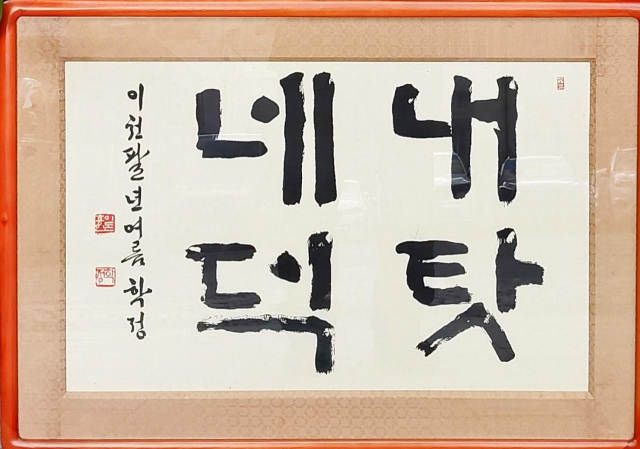 내탓
네덕
이천팔년여름 학정